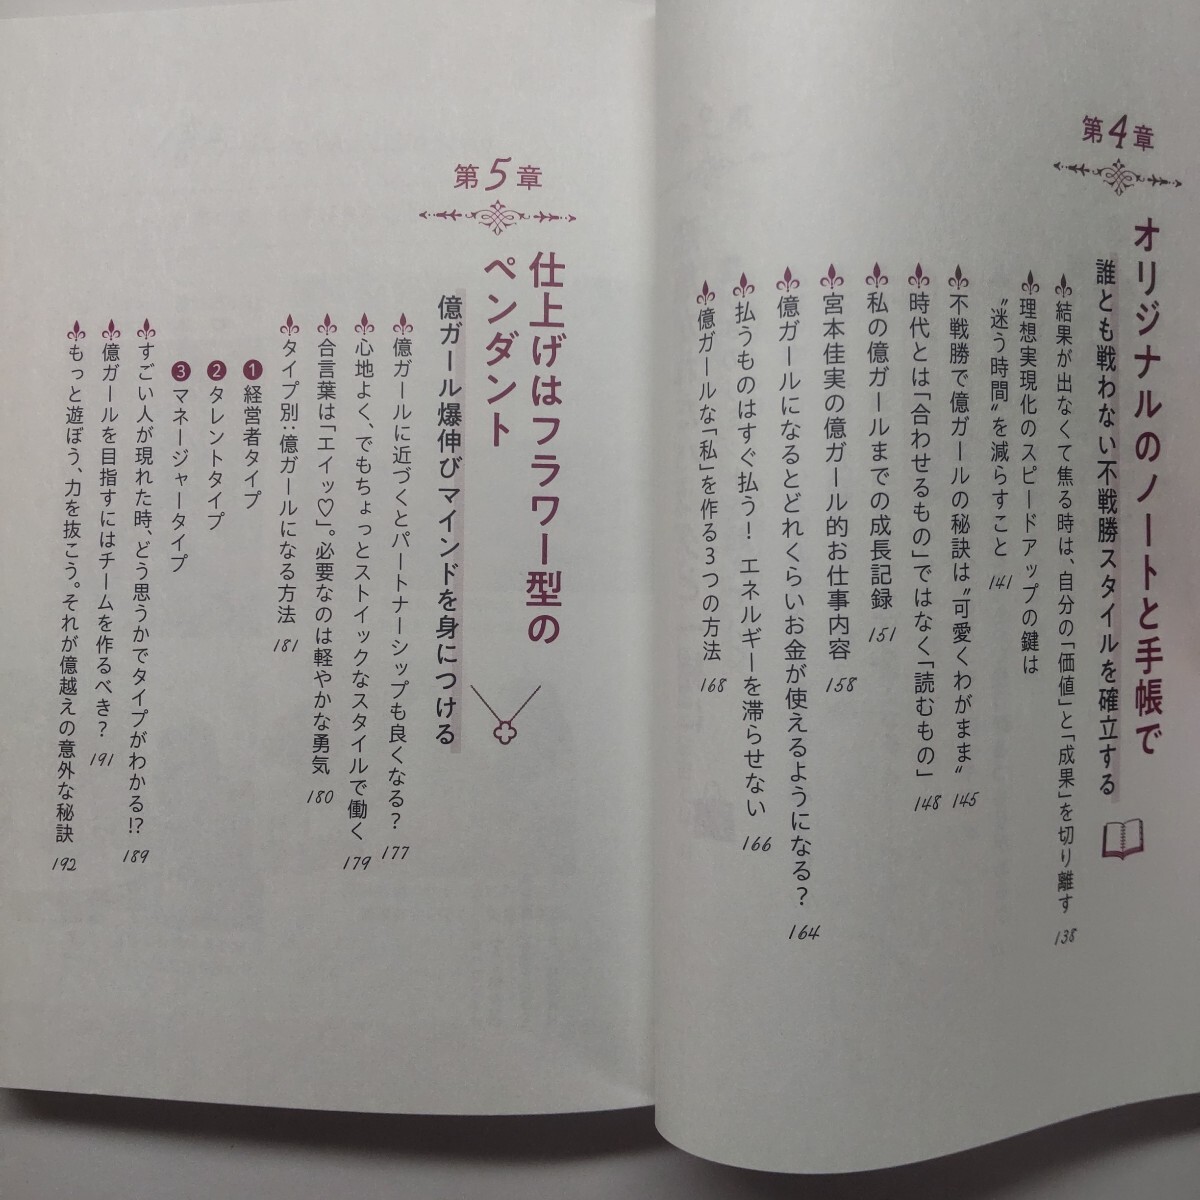 第4章
オリジナルのノートと手帳で
誰とも戦わない不戦勝スタイルを確立する
結果が出なくて焦る時は、自分の「価値」と「成果」を切り離す 138
理想実現化のスピードアップの鍵は
〝迷う時間〟を減らすこと 141
不戦勝で億ガールの秘訣は〝可愛くわがまま〟 145
時代とは「合わせるもの」ではなく「読むもの」 148
私の億ガールまでの成長記録 151
宮本佳実の億ガール的お仕事内容 158
億ガールになるとどれくらいお金が使えるようになる? 164
払うものはすぐ払う! エネルギーを滞らせない 166
億ガールな「私」を作る3つの方法 168
第5章
仕上げはフラワー型の
ペンダント
億ガール爆伸びマインドを身につける
億ガールに近づくとパートナーシップも良くなる? 177
心地よく、でもちょっとストイックなスタイルで働く 179
合言葉は「エイッ♡」。必要なのは軽やかな勇気 180
タイプ別:億ガールになる方法 181
❶経営者タイプ
❷タレントタイプ
❸マネージャータイプ
すごい人が現れた時、どう思うかでタイプがわかる!? 189
億ガールを目指すにはチームを作るべき? 191
もっと遊ぼう、力を抜こう。それが億越えの意外な秘訣 192